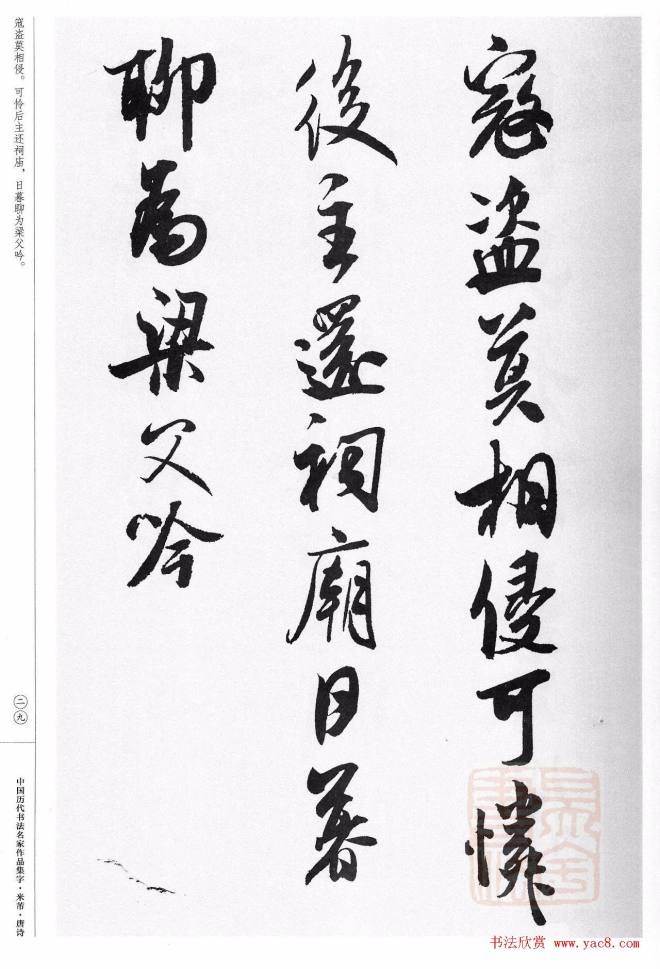 寇盗莫相侵可憐
後主還祠廟日暮
聊為梁父吟
寇盗莫相侵。可怜后主还祠庙，日暮聊为梁父吟。
二九
中国历代书法名家作品集字·米芾·唐诗
书法欣赏 www.yac8.com